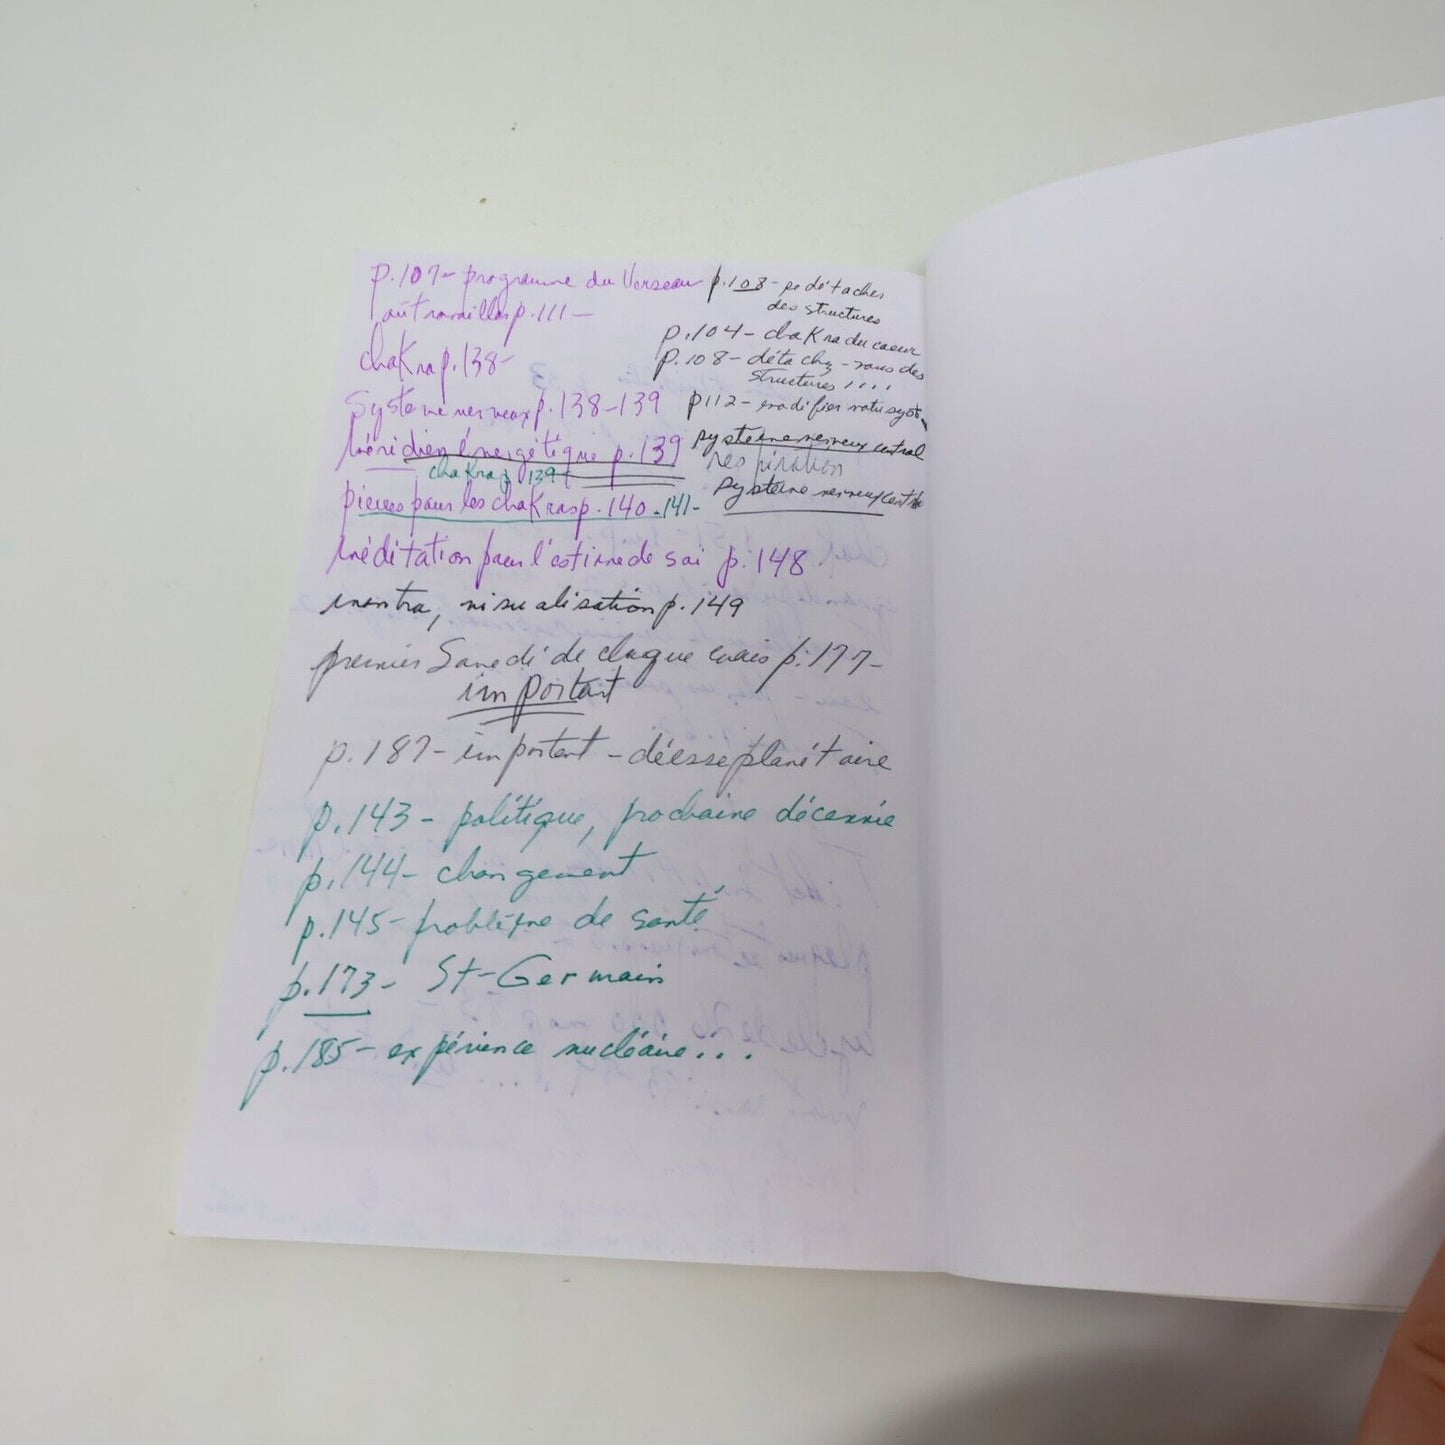 p.107- programme du Verseau
p.111-
chakra p.138-
Système nerveux p.138-139
Méridien énergétique p.139
chakra p.139-
pierres pour les chakras p.140-141-
Méditation pour l'estime de soi p.148
mantra, visualisation p.149
premier Samedi de chaque mois p.177-
important
p.187- important - déesse planétaire
p.143- politique, prochaine décennie
p.144- changement
p.145- problème de santé
p.173- St-Germain
p.185- expérience nucléaire...
p.108- se détacher
des structures
p.104- chakra du coeur
p.108- détachez-vous des
structures!!!!
p112-
système nerveux central
respiration
système nerveux central